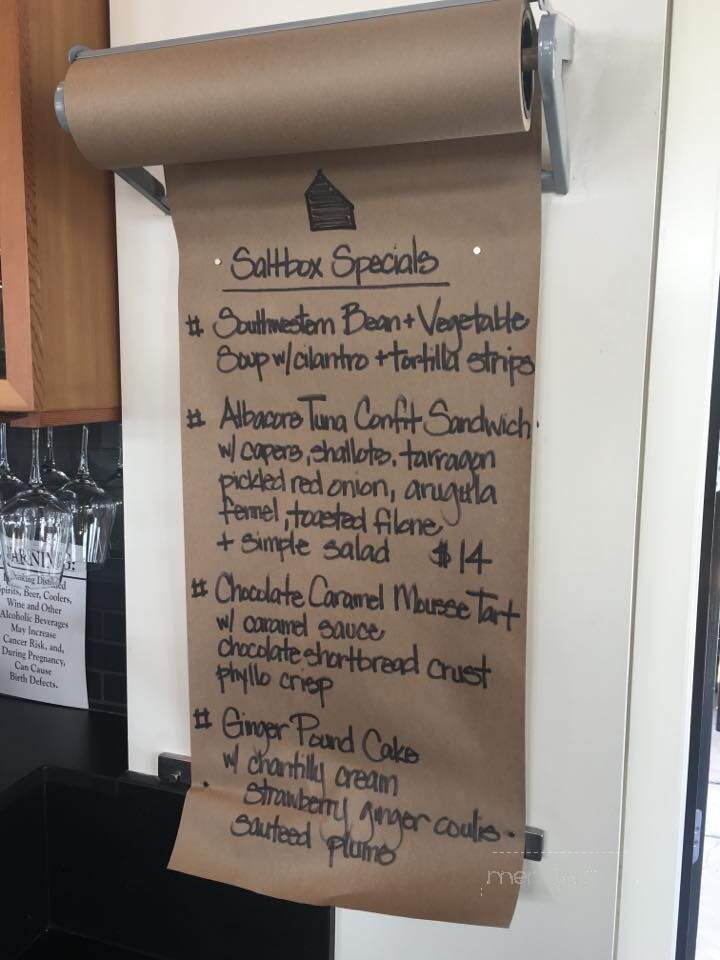 Saltbox Specials
# Southwestern Bean + Vegetable
Soup w/cilantro + tortilla strips
# Albacore Tuna Confit Sandwich
w/ capers, shallots, tarragon
pickled red onion, arugula
fennel, toasted filone
+ simple salad $14
# Chocolate Caramel Mousse Tart
w/ caramel sauce
chocolate shortbread crust
phyllo crisp
# Ginger Pound Cake
w/ chantilly cream
strawberry ginger coulis
sauteed plums
WARNING:
Drinking Distilled
Spirits, Beer, Coolers,
Wine and Other
Alcoholic Beverages
May Increase
Cancer Risk, and,
During Pregnancy,
Can Cause
Birth Defects.